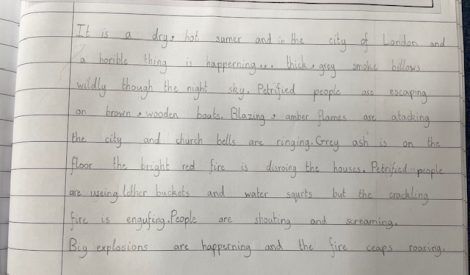 It is a dry, hot sumer and in the city of London and
a horible thing is happerning... thick, grey smoke billows
wildly though the night sky. Petrified people are escaping
on brown, wooden boats. Blazing, amber flames are atacking
the city and church bells are ringing. Grey ash is on the
floor the bright red fire is disroing the houses. Petrified people
are useing lether buckets and water squrts but the crackling
fire is engufeng. People are shouting and screaming.
Big explosions are happerning and the fire ceaps roaring.